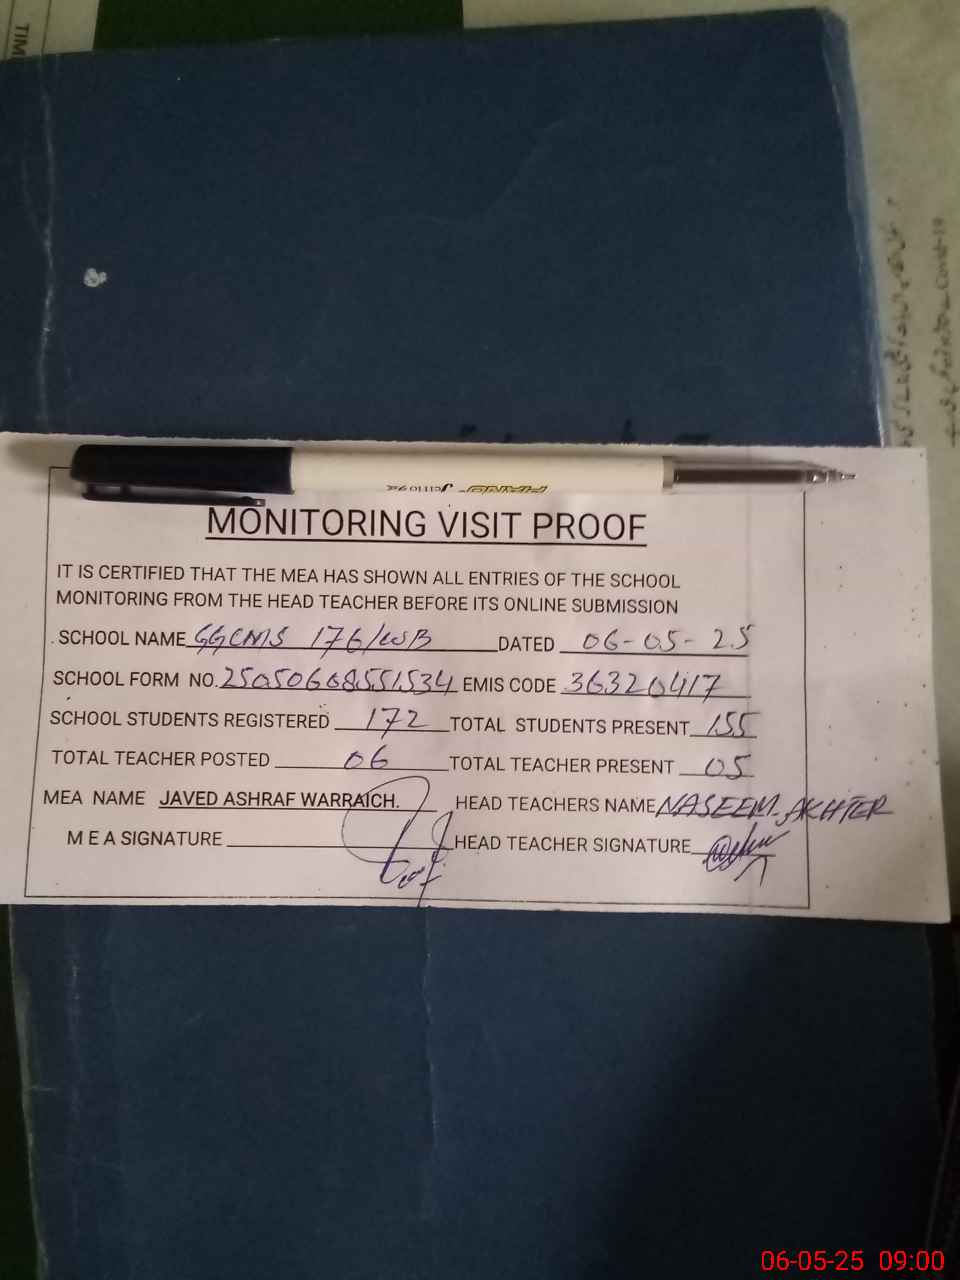 TIM
PIANO Jetlo
MONITORING VISIT PROOF
IT IS CERTIFIED THAT THE MEA HAS SHOWN ALL ENTRIES OF THE SCHOOL
MONITORING FROM THE HEAD TEACHER BEFORE ITS ONLINE SUBMISSION
SCHOOL NAME GGCMS 176/WB DATED 06-05-25
SCHOOL FORM NO. 25050608551534 EMIS CODE 36320417
SCHOOL STUDENTS REGISTERED 172 TOTAL STUDENTS PRESENT 155
TOTAL TEACHER POSTED 06 TOTAL TEACHER PRESENT 05
MEA NAME JAVED ASHRAF WARRAICH. HEAD TEACHERS NAME NASEEM AKHTER
M E A SIGNATURE HEAD TEACHER SIGNATURE
06-05-25 09:00